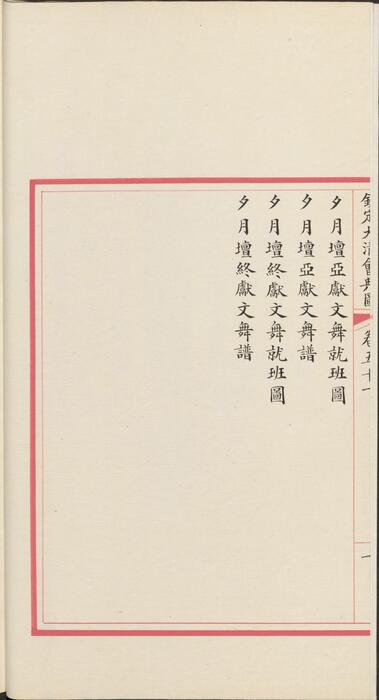 欽定大清會典圖 卷五十一 一
夕月壇亞獻文舞就班圖
夕月壇亞獻文舞譜
夕月壇終獻文舞就班圖
夕月壇終獻文舞譜